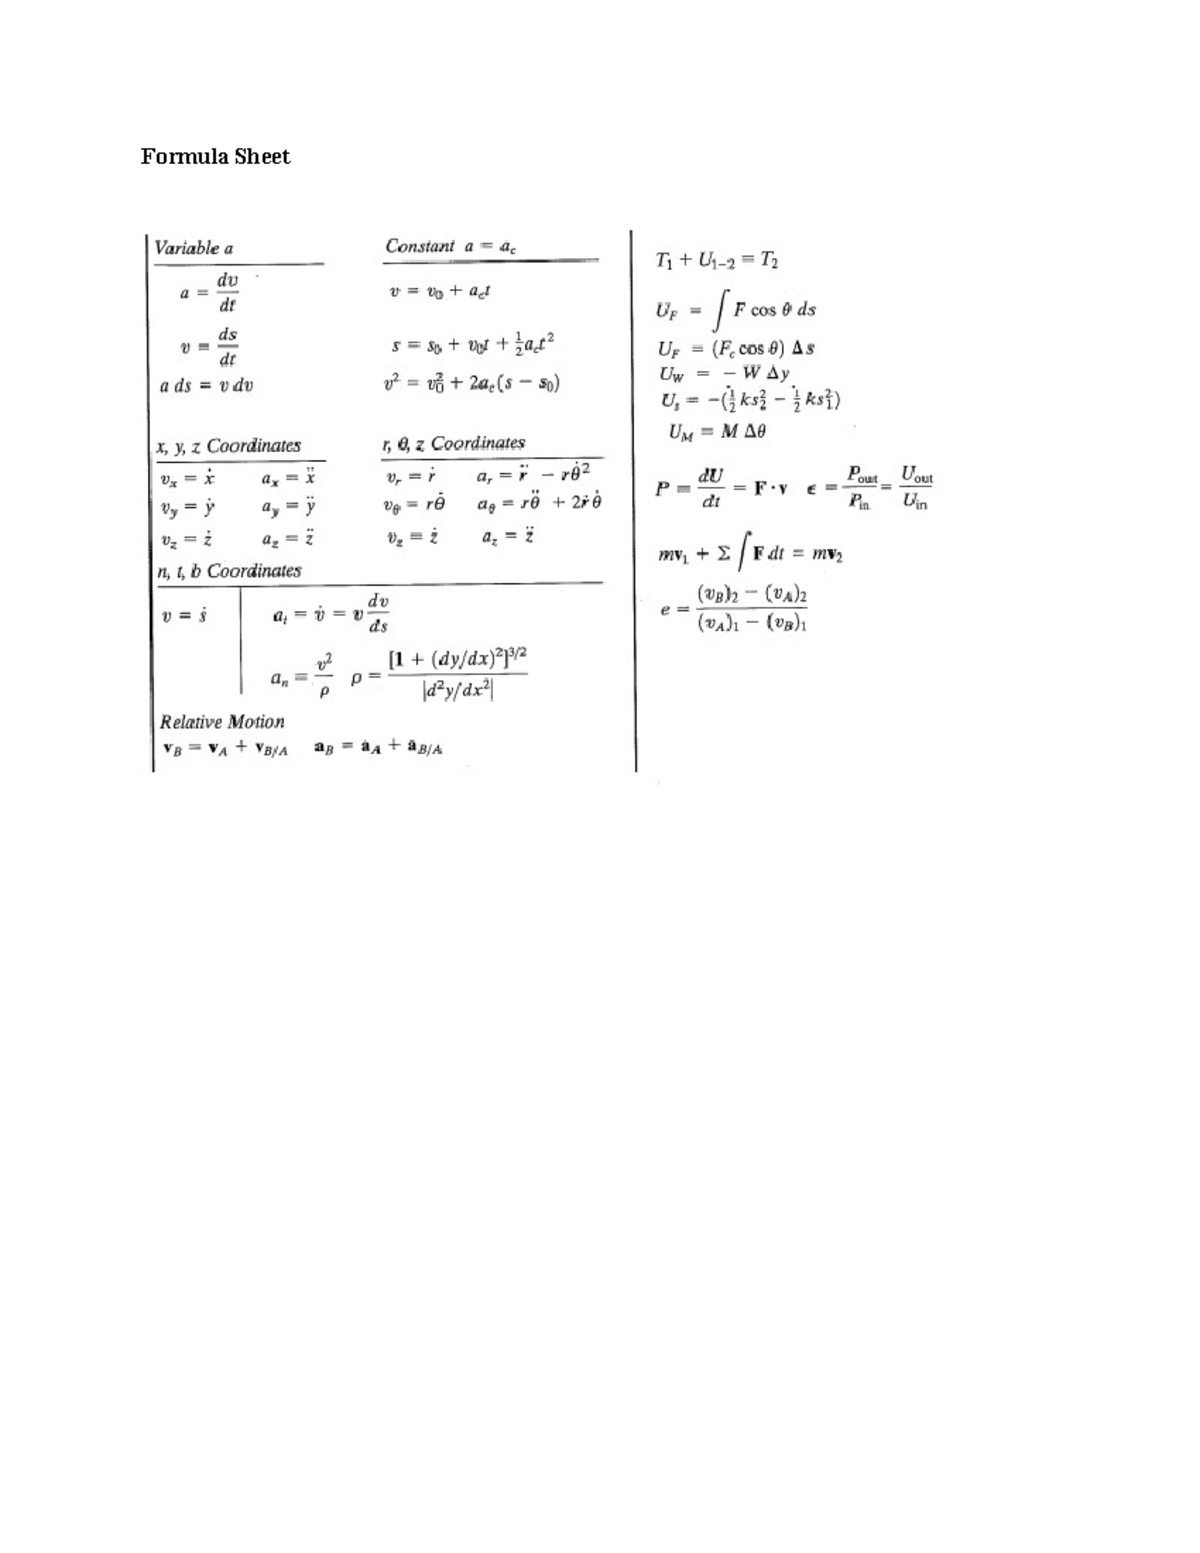 Formula Sheet
Variable a
a = dv/dt
v = ds/dt
a ds = v dv
Constant a = a_c
v = v₀ + a_c t
s = s₀ + v₀t + ½a_c t²
v² = v₀² + 2a_c(s − s₀)
x, y, z Coordinates
vₓ = ẋ aₓ = ẍ
v_y = ẏ a_y = ÿ
v_z = ż a_z = z̈
r, θ, z Coordinates
v_r = ṙ a_r = r̈ − rθ̇²
v_θ = rθ̇ a_θ = rθ̈ + 2ṙθ̇
v_z = ż a_z = z̈
n, t, b Coordinates
v = ṡ a_t = v̇ = v dv/ds
a_n = v²/ρ ρ = [1 + (dy/dx)²]^3/2 / |d²y/dx²|
Relative Motion
v_B = v_A + v_B/A a_B = a_A + a_B/A
T₁ + U₁₋₂ = T₂
U_F = ∫ F cos θ ds
U_F = (F_c cos θ) Δs
U_W = − W Δy
U_s = −(½ ks₂² − ½ ks₁²)
U_M = M Δθ
P = dU/dt = F · v ϵ = P_out/P_in = U_out/U_in
mv₁ + Σ ∫ F dt = mv₂
e = (v_B)₂ − (v_A)₂ / (v_A)₁ − (v_B)₁